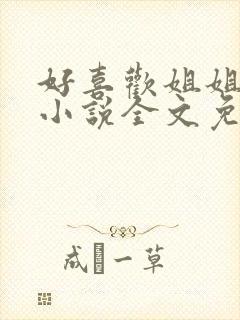 好喜歡姐姐
小說全文免
成 一草